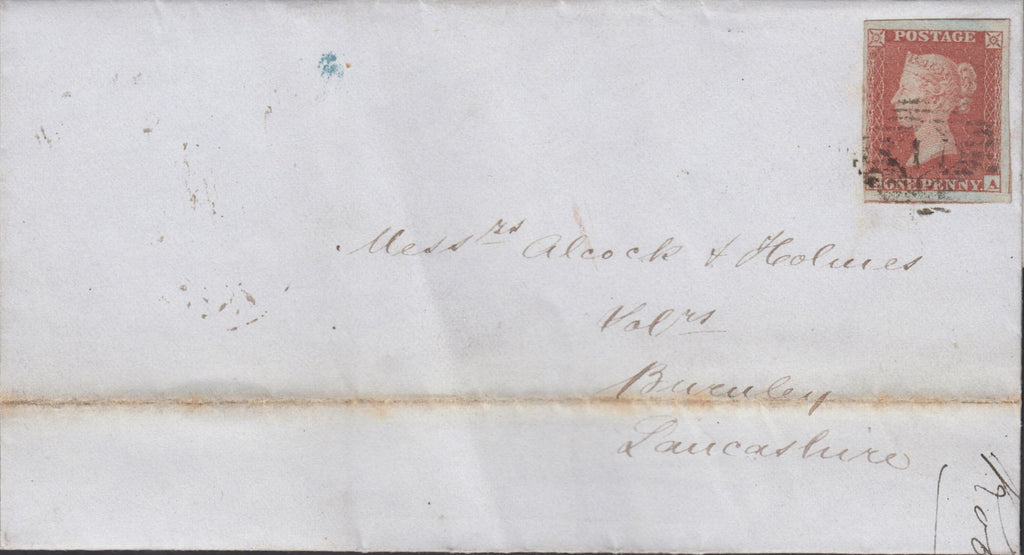 POSTAGE
ONE PENNY. A
Messrs Alcock & Holmes
Solrs
Burnley
Lancashire